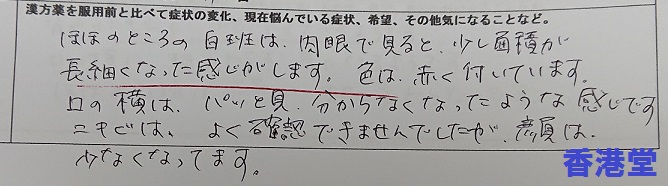 漢方薬を服用前と比べて症状の変化、現在悩んでいる症状、希望、その他気になることなど。
ほほのところの白班は、肉眼で見ると、少し面積が
長細くなった感じがします。色は、赤く付いています。
口の横は、パッと見、分からなくなったような感じです
ニキビは、よく確認できませんでしたが、素顔は
少なくなってます。
香港堂